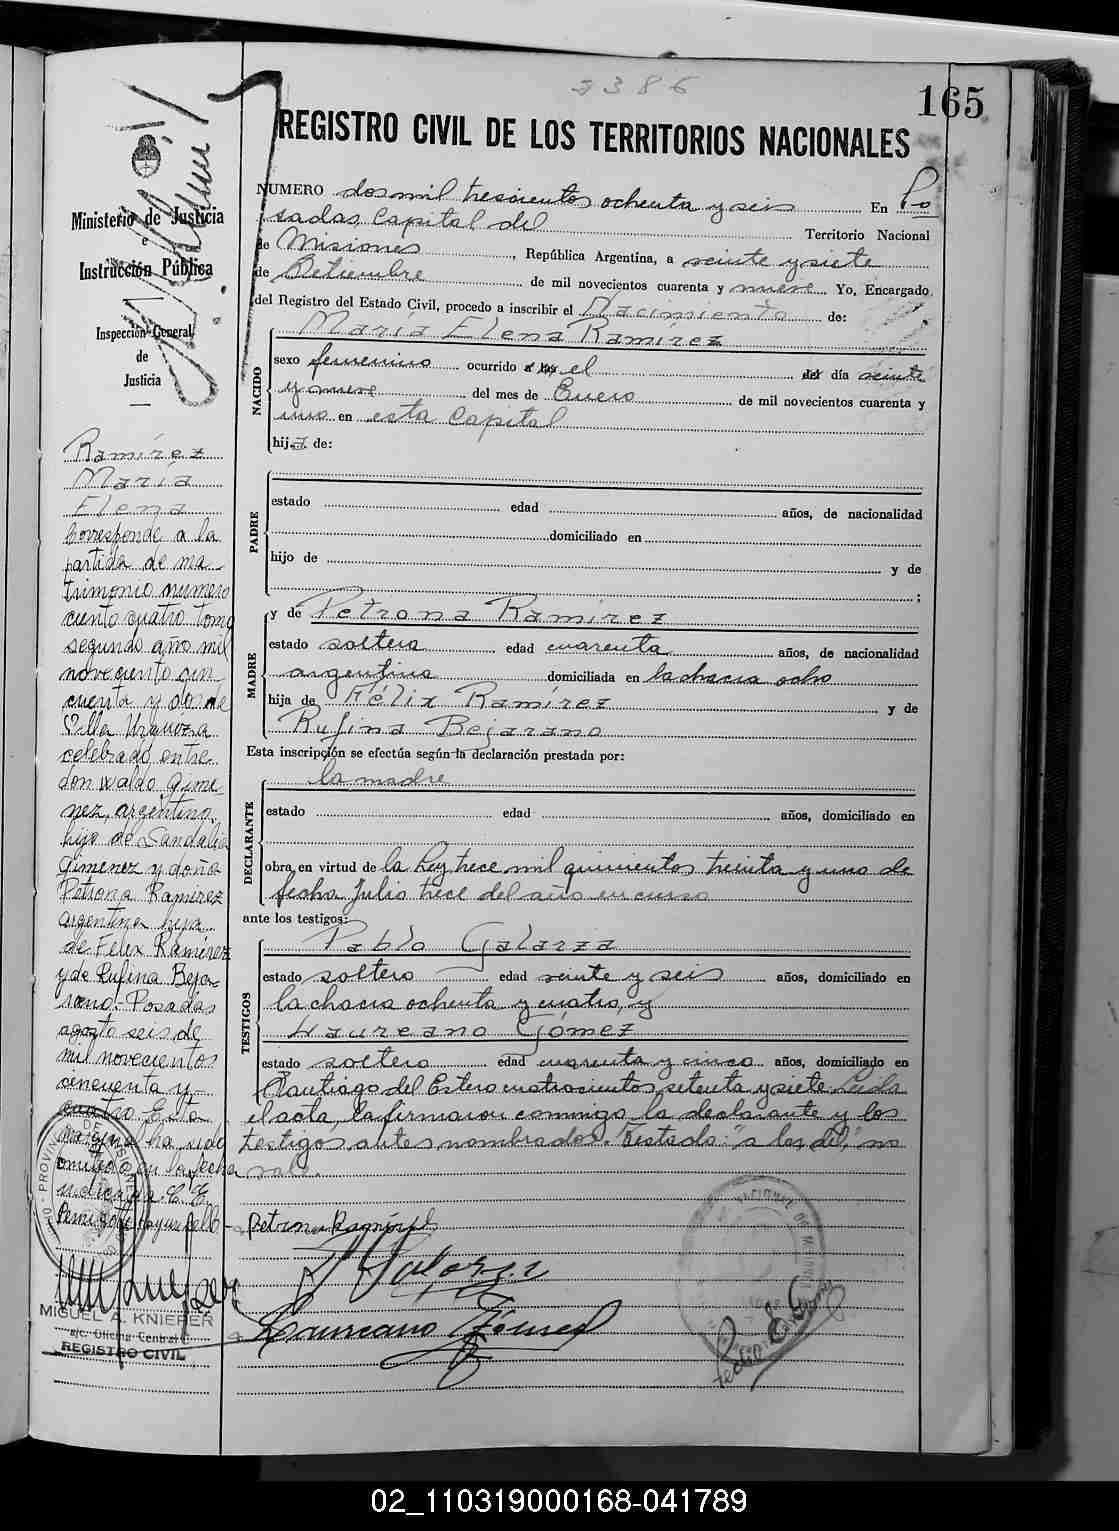 2386
165
REGISTRO CIVIL DE LOS TERRITORIOS NACIONALES
Ministerio de Justicia
e
Instrucción Pública
Inspección General
de
Justicia
NUMERO dos mil trescientos ochenta y seis En Po
sadas, Capital del Territorio Nacional
de Misiones, República Argentina, a veinte y siete
de Setiembre de mil novecientos cuarenta y nueve Yo, Encargado
del Registro del Estado Civil, procedo a inscribir el Nacimiento de:
NACIDO
María Elena Ramírez
sexo femenino ocurrido a las el del día veinte
y nueve del mes de Enero de mil novecientos cuarenta y
uno en esta Capital
hija de:
PADRE
estado edad años, de nacionalidad
domiciliado en
hijo de y de
;
MADRE
y de Petrona Ramírez
estado soltera edad cuarenta años, de nacionalidad
argentina domiciliada en la chacra ocho
hija de Félix Ramírez y de
Rufina Bejarano
Esta inscripción se efectúa según la declaración prestada por:
DECLARANTE
la madre
estado edad años, domiciliado en
obra en virtud de la Ley trece mil quinientos treinta y uno de
fecha Julio trece del año en curso
ante los testigos:
TESTIGOS
Pablo Galarza
estado soltero edad veinte y seis años, domiciliado en
la chacra ochenta y cuatro, y
Laureano Gómez
estado soltero edad cuarenta y cinco años, domiciliado en
Santiago del Estero cuatrocientos setenta y siete Leida
el acta, la firmaron conmigo la declarante y los
testigos antes nombrados. Testado: "a las, del," no
vale.
Petrona Ramírez
P Galarza
Laureano Gomez
Ramírez
María
Elena
Corresponde a la
partida de ma
trimonio numero
ciento cuatro tomo
segundo año mil
noveciento cin
cuenta y dos de
Villa Urquiza
celebrado entre
don Waldo Gime
nez, argentino,
hijo de Sandalio
Gimenez y doña
Petrona Ramirez
argentina hija
de Felix Ramirez
y de Rufina Beja
rano.- Posadas
agosto seis de
mil novecientos
cincuenta y
cuatro. Esta
ha sido
omitida en la fecha
indicada.
MIGUEL A. KNIEPER
a/c. Oficina Central
REGISTRO CIVIL
02_110319000168-041789